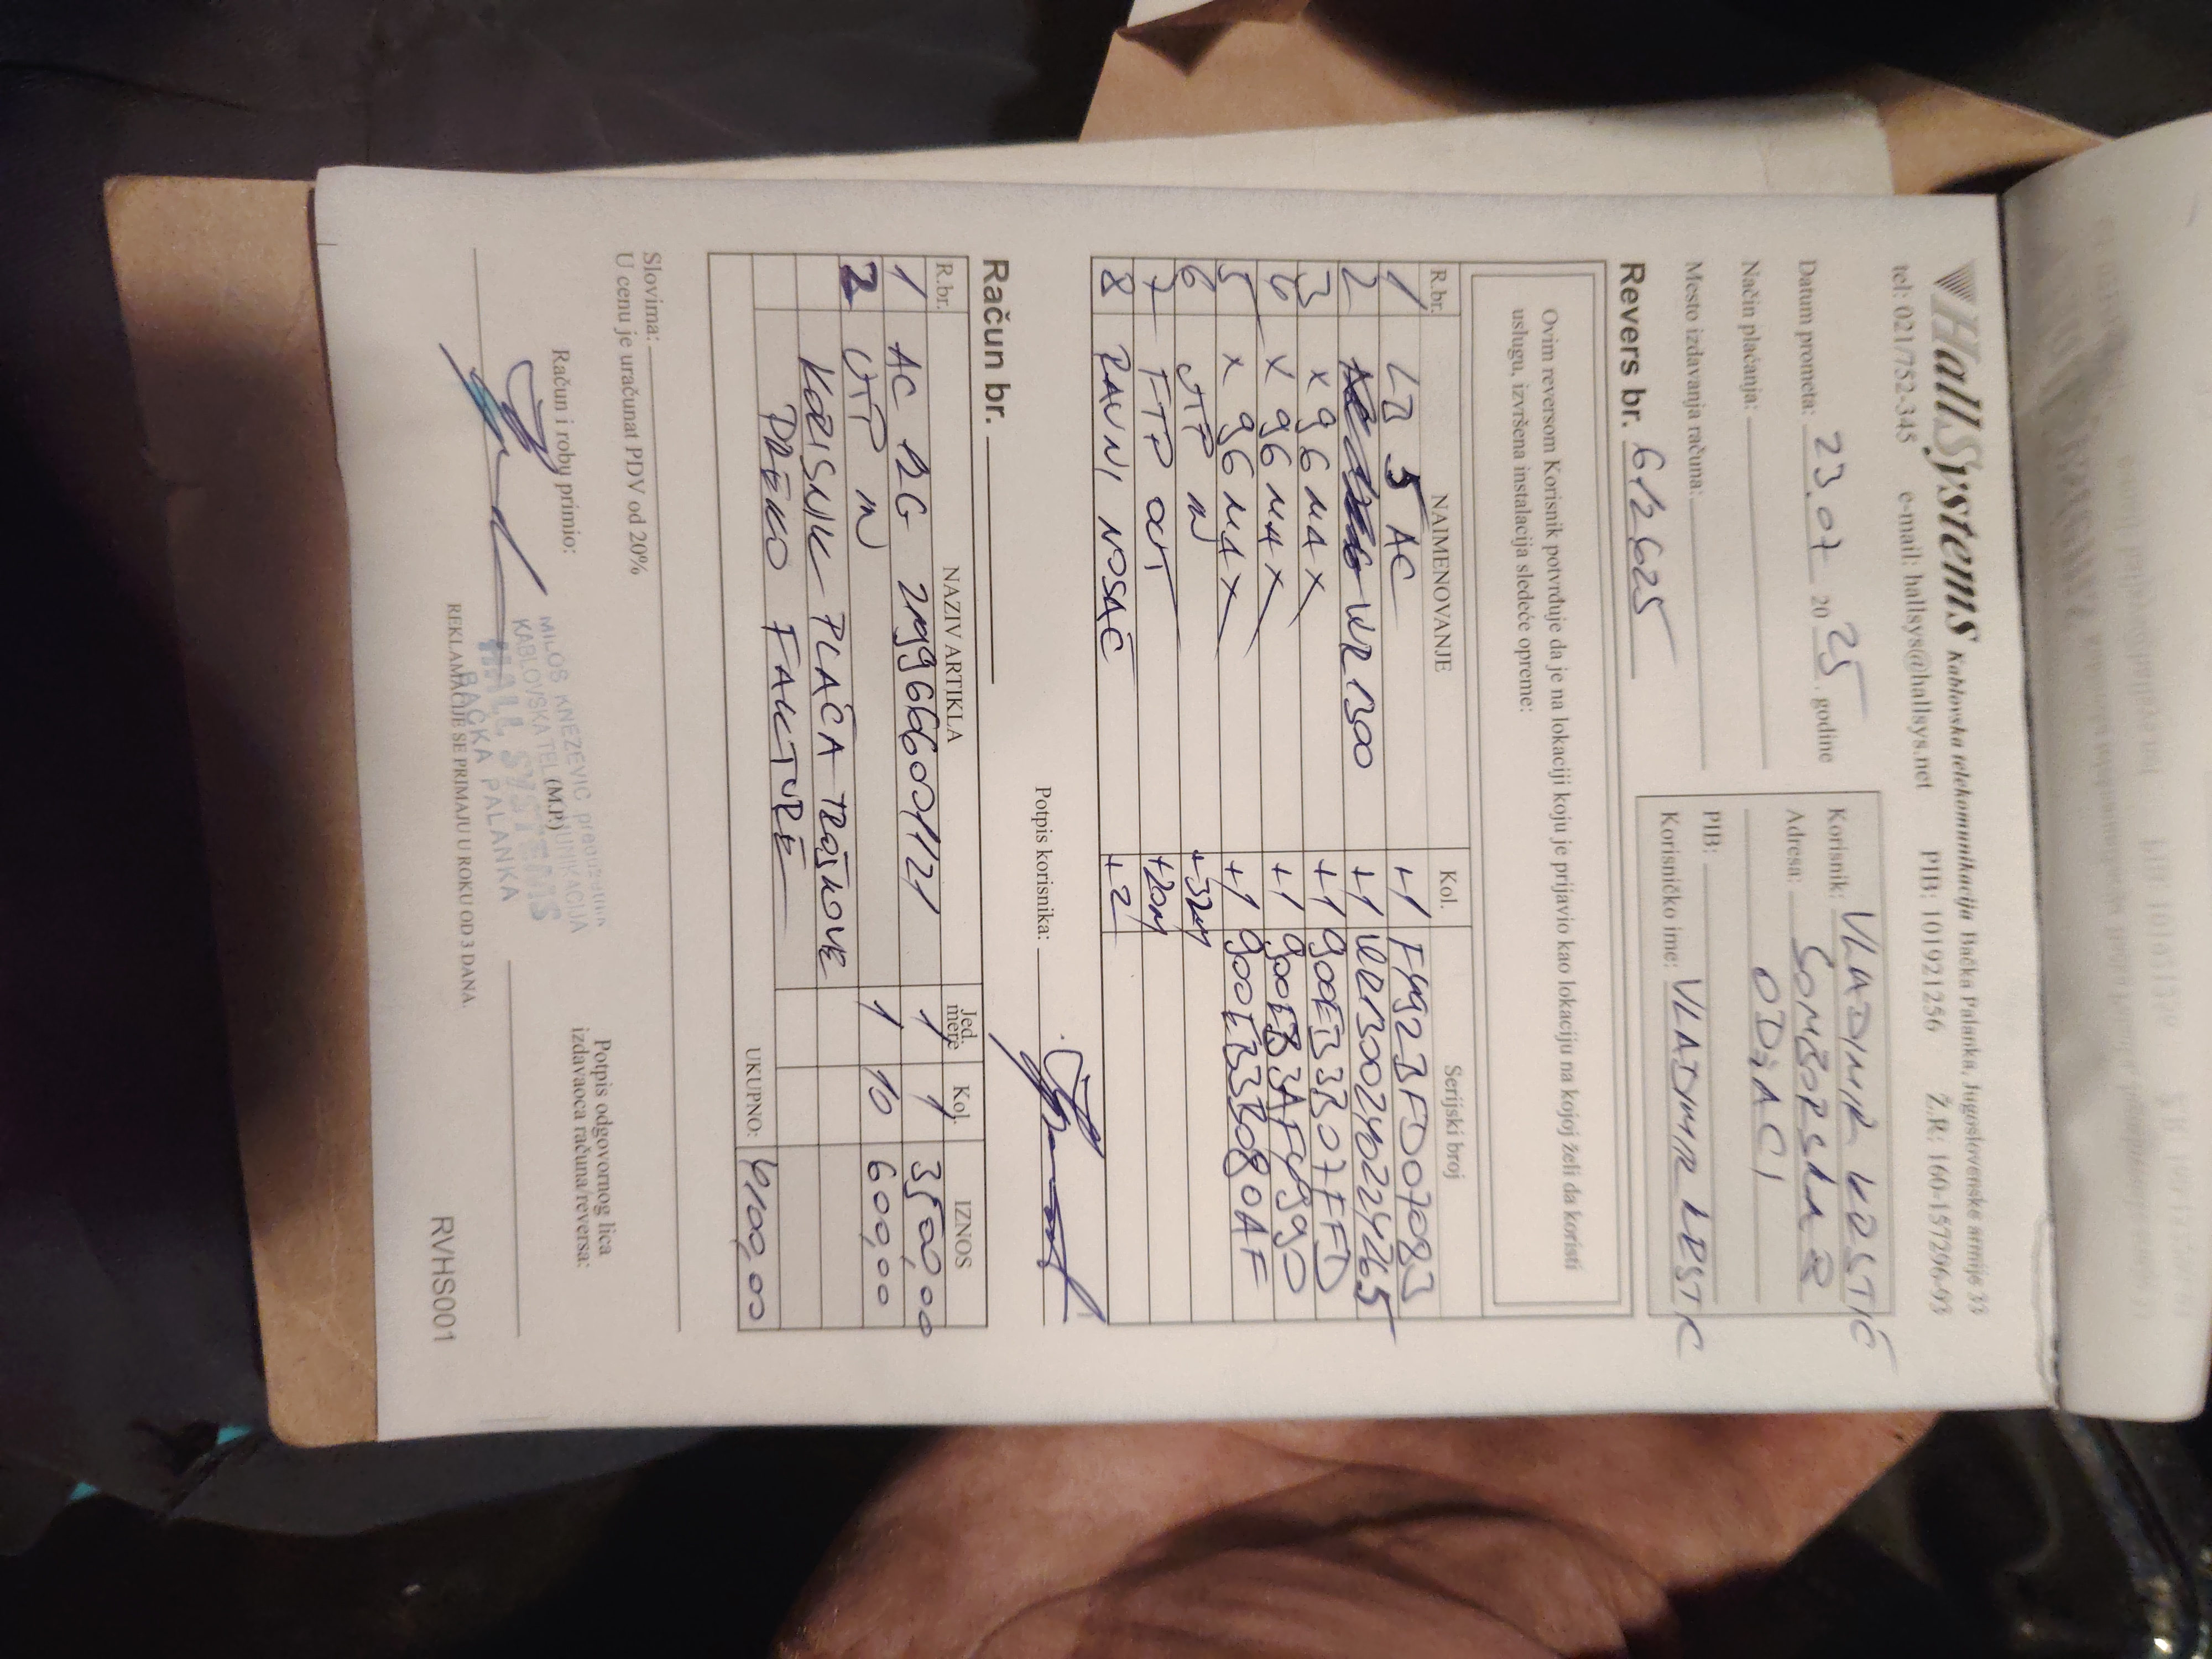 HallSystems Kablovska telekomunikacija Bačka Palanka, Jugoslovenske armije 33
tel: 021/752-345 e-mail: hallsys@hallsys.net PIB: 101921256 Ž.R: 160-157296-93
Datum prometa: 23.07 2025. godine
Način plaćanja:
Mesto izdavanja računa:
Korisnik: VLADIMIR KOSTIĆ
Adresa: SOMBORSKA
ODŽACI
PIB:
Korisničko ime: VLADIMIR KRSTIC
Revers br. 612625
Ovim reversom Korisnik potvrđuje da je na lokaciji koju je prijavio kao lokaciju na kojoj želi da koristi
uslugu, izvršena instalacija sledeće opreme:
R.br. NAIMENOVANJE Kol. Serijski broj
1 LB 5 AC +1 F492BFD0708J
2 WR 1300 +1 WR1300240224265
3 X 96 MAX +1 900EB33B07FFD
4 X 96 MAX +1
5 X 96 MAX +1 900EB33B080AF
6 UTP IN +32M
7 FTP OUT +20M
8 RAVNI NOSAČ +2
Potpis korisnika:
Račun br.
R.br. NAZIV ARTIKLA Jed. mere Kol. IZNOS
1 AC RG 1 1 3500,00
2 UTP IN 1 10 600,00
KORISNIK PLAĆA TROŠKOVE
PREKO FAKTURE
UKUPNO: 4100,00
Slovima:
U cenu je uračunat PDV od 20%
Račun i robu primio:
Potpis odgovornog lica
izdavaoca računa/reversa:
MILOŠ KNEŽEVIĆ preduzetnik
KABLOVSKA TELEKOMUNIKACIJA
(M.P.)
HALL SYSTEMS
BAČKA PALANKA
REKLAMACIJE SE PRIMAJU U ROKU OD 3 DANA.
RVHS001